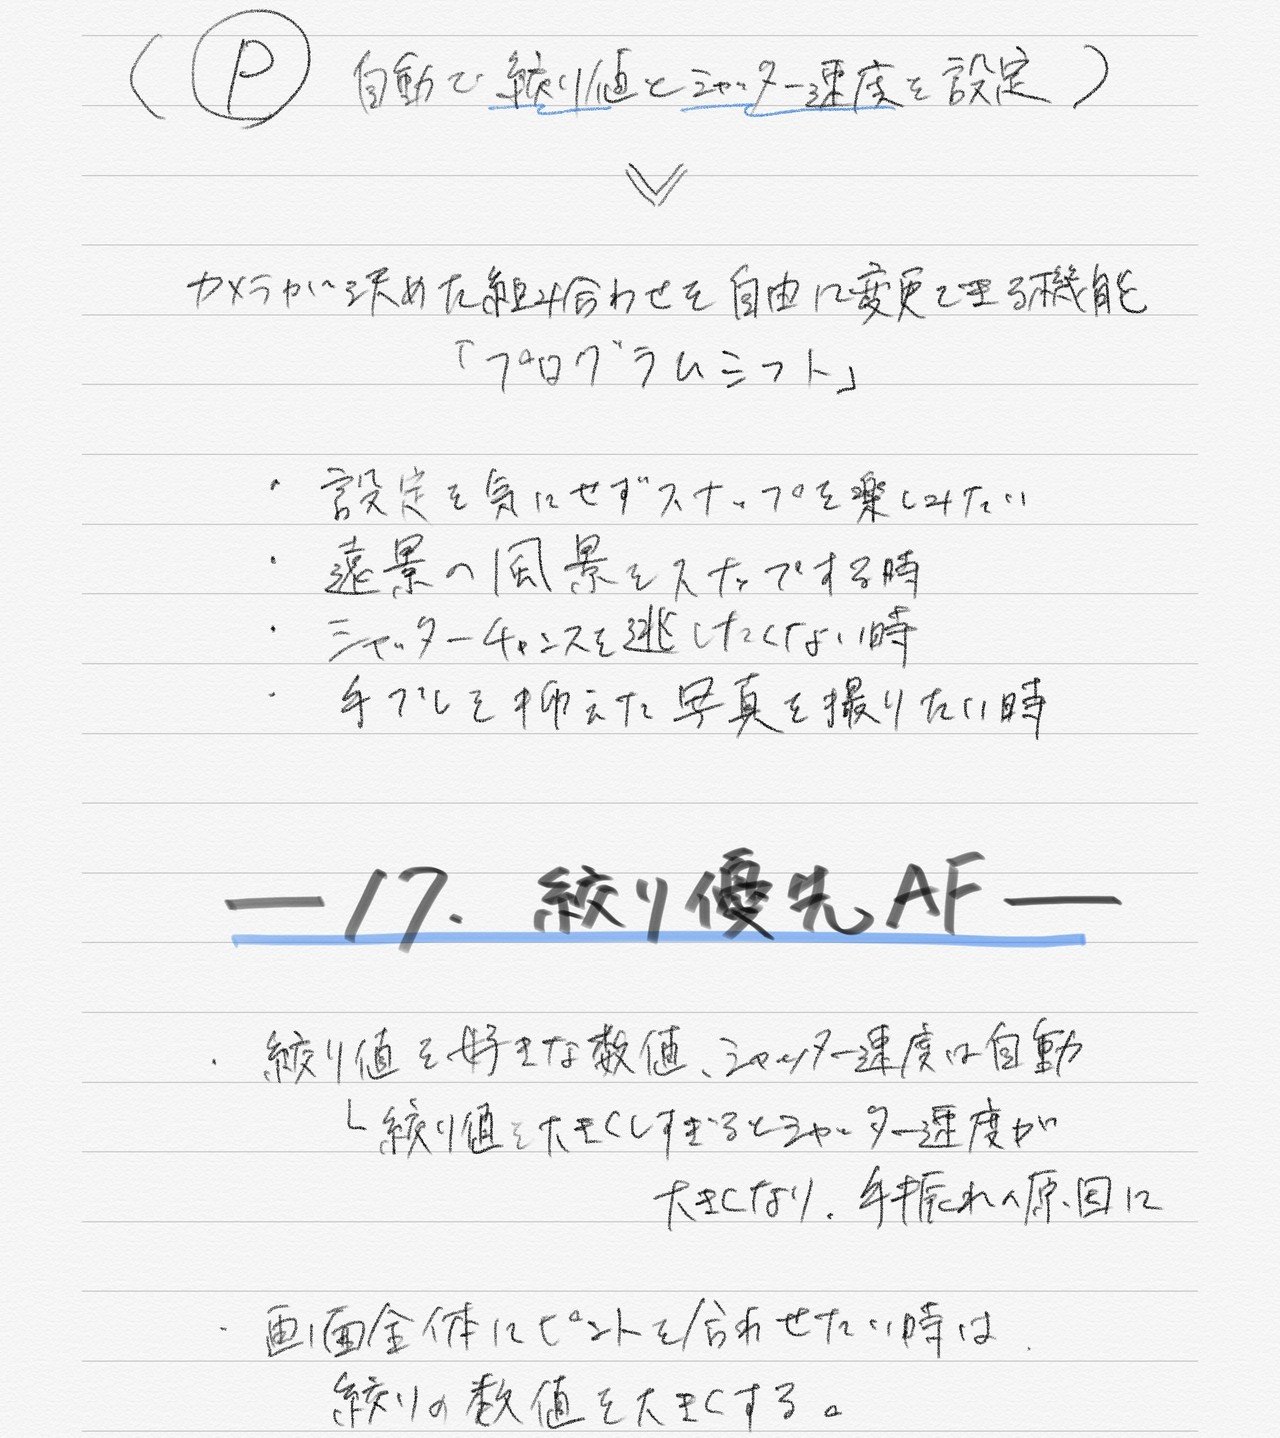 (Ⓟ 自動で絞り値とシャッター速度を設定)
カメラが決めた組み合わせを自由に変更できる機能
「プログラムシフト」
・設定を気にせずスナップを楽しみたい
・遠景の風景をスナップする時
・シャッターチャンスを逃したくない時
・手ブレを抑えた写真を撮りたい時
— 17. 絞り優先AF —
・絞り値を好きな数値、シャッター速度は自動
└ 絞り値を大きくしすぎるとシャッター速度が
大きくなり、手振れの原因に
・画面全体にピントを合わせたい時は
絞りの数値を大きくする。